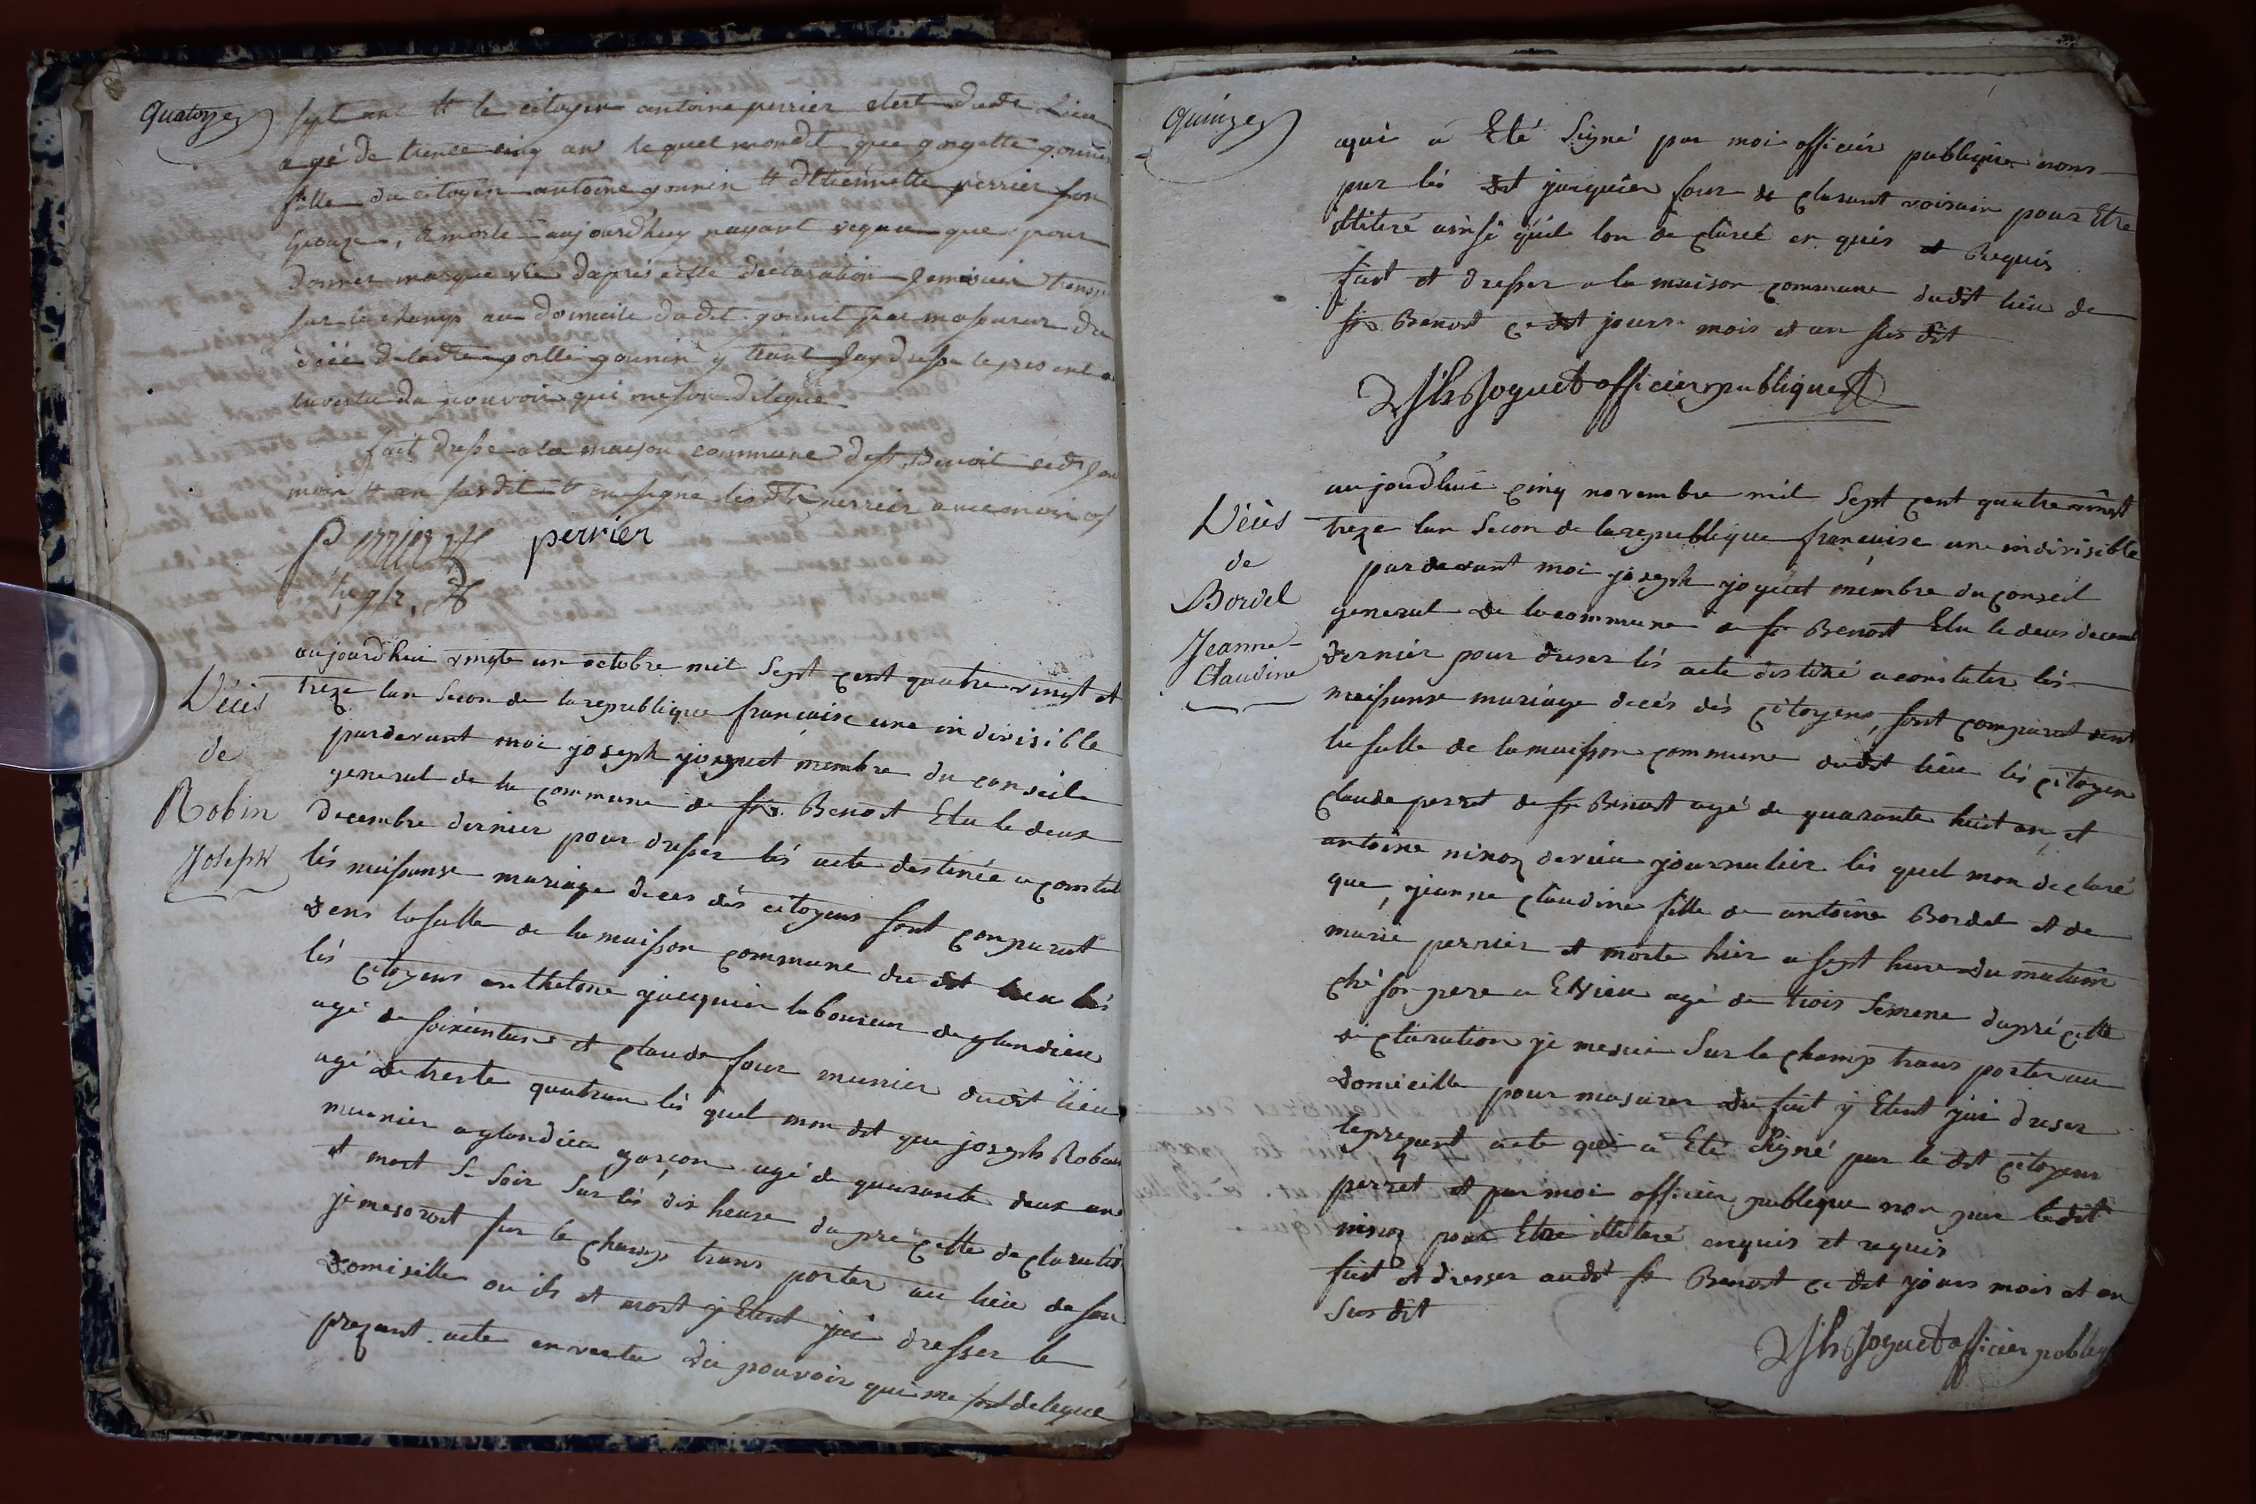 Quatorze
sept ans et le citoyen antoine perrier clert dudt Lieu
agé de trente cinq ans lequel mondit que gorgette gounin
fille du citoyen antoine gounin et dEtiennette perrier son
Epouze, Emorte aujourdhuy nayant vequu que pour
donner marque vie dapres cette declaration jemesuis transp
sur le champ au domicile dudit gounit pour massurer du
déces de ladte gounin y étant Jay dresse le present a
envertu du pouvoir qui meson délégué
fait dresse a la maison commune de st. Benoit cedt jour
mois et an susdit et on signé les dt perrier avec moi of
perrier
aujourdhui vingte un octobre mil Sept cent quatre vingt et
Décès
de
Robin
Joseph
treze lan Secon de la republique francaise une indivisible
pardevant moi joseph joguet membre du conseil
general de la commune de st. Benost Elu le deux
decembre dernier pour dresser lés acte destinée a constat
lés naissanse mariage deces dés citoyens sont conparut
dens lasalle de la maisson commune du dit lieu lés
lés citoyens anthelone jacquier laboureur de glandieu
agé de soixantans et claude four munier dudit lieu
agé de trente quatran lés quel mon dit que joseph Robin
meunier a glandieu garçon agé de quarante deux ans
et mort Se Soir Sur lés dix heure dapré cette declaratio
je mesoroit sur le champ trans porter au lieu de son
domisille ou ils et mort y Etent jai dresser le
prezant acte en vertu du pouvoir qui me sont delegué
Quinze
a qui a Eté Signé par moi officier publique non
par lés dit jacquier four de clarant voisain pour Etre
illiteré ainsi quil lon de claréé en quis et Requis
fait et dresser a la maison commune dudit lieu de
st. Benost ce dit jours mois et an sus dit
Jh Joguet officier publique
aujourdhui cinq novembre mil Sept cent quatre vingt
Décès
de
Bordel
Jeanne-
Claudine
treze lan Secon de la republique francaise une indivisible
pardevant moi joseph joguet membre du conseil
general de la commune de st Benost Elu le deus decemb
dernier pour dreser lés acte destiné a constater lés
naissanse mariage decés dés citoyens, sont comparut dent
la salle de la maisson commune dudit lieu lés citoyen
claude perret de st Benost agé de quarante huit an, et
antoine ninoz devieu journalier lés quel mon declaré
que, jeanne claudine fille de antoine Bordel et de
marie perrier et morte hier a sept hure du matain
ché son pere a Evieu agé de trois Semene dapré cette
declaration je mesui Sur le champ trans porter au
domicille pour masurer du fait y Etent jai dreser
leprezant acte qui a Eté Signé par le dit citoyens
perret et par moi officier publique non par ledit
ninoz pour Etre illiteré enquis et requis
fait et dresser audit st Benost ce dit jours mois et an
Sus dit
Jh Joguet officier publiq